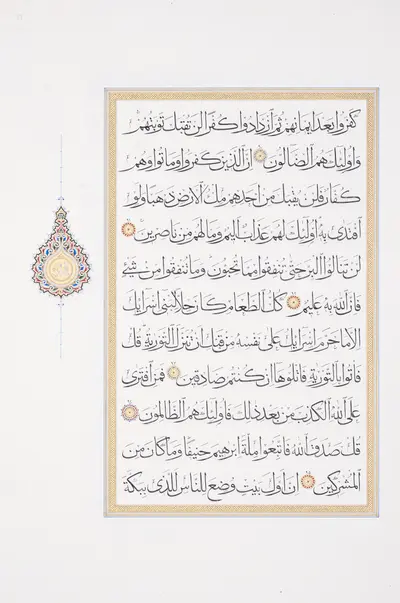 كَفَرُوا بَعْدَ إِيمَانِهِمْ ثُمَّ ازْدَادُوا كُفْرًا لَنْ تُقْبَلَ تَوْبَتُهُمْ
وَأُولَٰئِكَ هُمُ الضَّالُّونَ إِنَّ الَّذِينَ كَفَرُوا وَمَاتُوا وَهُمْ
كُفَّارٌ فَلَنْ يُقْبَلَ مِنْ أَحَدِهِمْ مِلْءُ الْأَرْضِ ذَهَبًا وَلَوِ
افْتَدَىٰ بِهِ أُولَٰئِكَ لَهُمْ عَذَابٌ أَلِيمٌ وَمَا لَهُمْ مِنْ نَاصِرِينَ
لَنْ تَنَالُوا الْبِرَّ حَتَّىٰ تُنْفِقُوا مِمَّا تُحِبُّونَ وَمَا تُنْفِقُوا مِنْ شَيْءٍ
فَإِنَّ اللَّهَ بِهِ عَلِيمٌ كُلُّ الطَّعَامِ كَانَ حِلًّا لِبَنِي إِسْرَائِيلَ
إِلَّا مَا حَرَّمَ إِسْرَائِيلُ عَلَىٰ نَفْسِهِ مِنْ قَبْلِ أَنْ تُنَزَّلَ التَّوْرَاةُ قُلْ
فَأْتُوا بِالتَّوْرَاةِ فَاتْلُوهَا إِنْ كُنْتُمْ صَادِقِينَ فَمَنِ افْتَرَىٰ
عَلَى اللَّهِ الْكَذِبَ مِنْ بَعْدِ ذَٰلِكَ فَأُولَٰئِكَ هُمُ الظَّالِمُونَ
قُلْ صَدَقَ اللَّهُ فَاتَّبِعُوا مِلَّةَ إِبْرَاهِيمَ حَنِيفًا وَمَا كَانَ مِنَ
الْمُشْرِكِينَ إِنَّ أَوَّلَ بَيْتٍ وُضِعَ لِلنَّاسِ لَلَّذِي بِبَكَّةَ